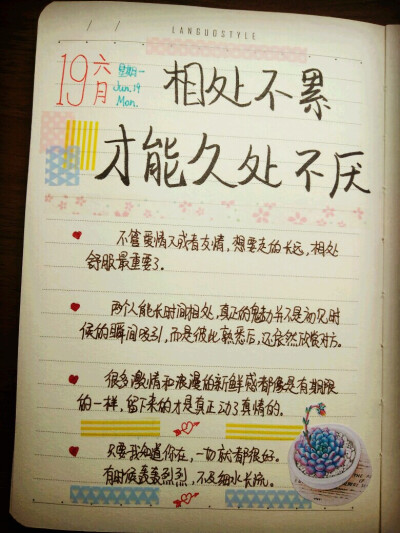 LANGUOSTYLE
19
六月
星期一
Jun.19
Mon.
相处不累
才能久处不厌
不管爱情又或者友情，想要走的长远，相处
舒服最重要了。
两个人能长时间相处，真正的魅力并不是初见时
候的瞬间吸引，而是彼此熟悉后，还依然欣赏对方。
很多激情和浪漫的新鲜感都像是有期限
的一样，留下来的才是真正动了真情的。
只要我知道你在，一切就都很好。
有时候轰轰烈烈，不及细水长流。